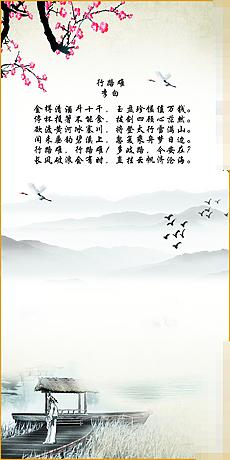 行路难
李白
金樽清酒斗十千，玉盘珍馐值万钱。
停杯投箸不能食，拔剑四顾心茫然。
欲渡黄河冰塞川，将登太行雪满山。
闲来垂钓碧溪上，忽复乘舟梦日边。
行路难！行路难！多歧路，今安在？
长风破浪会有时，直挂云帆济沧海。